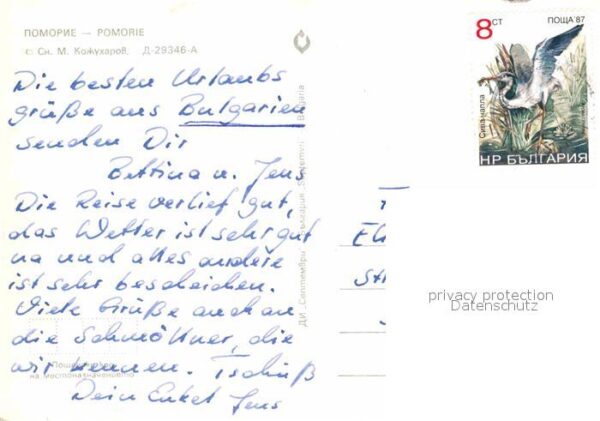 ПОМОРИЕ — POMORIE
© Сн. М. Кожухаров, Д-29346-А
Die besten Urlaubs
grüße aus Bulgarien
senden Dir
Bettina u. Jens.
Die Reise verlief gut,
das Wetter ist sehr gut
na und alles andere
ist sehr bescheiden.
Viele Grüße auch an
die Schmöllner, die
wir kennen. Tschüß
Dein Enkel Jens
ДИ „Септември"
Bulgaria
на местоназначението
8 СТ ПОЩА '87
Сива чапла
НР БЪЛГАРИЯ
privacy protection
Datenschutz